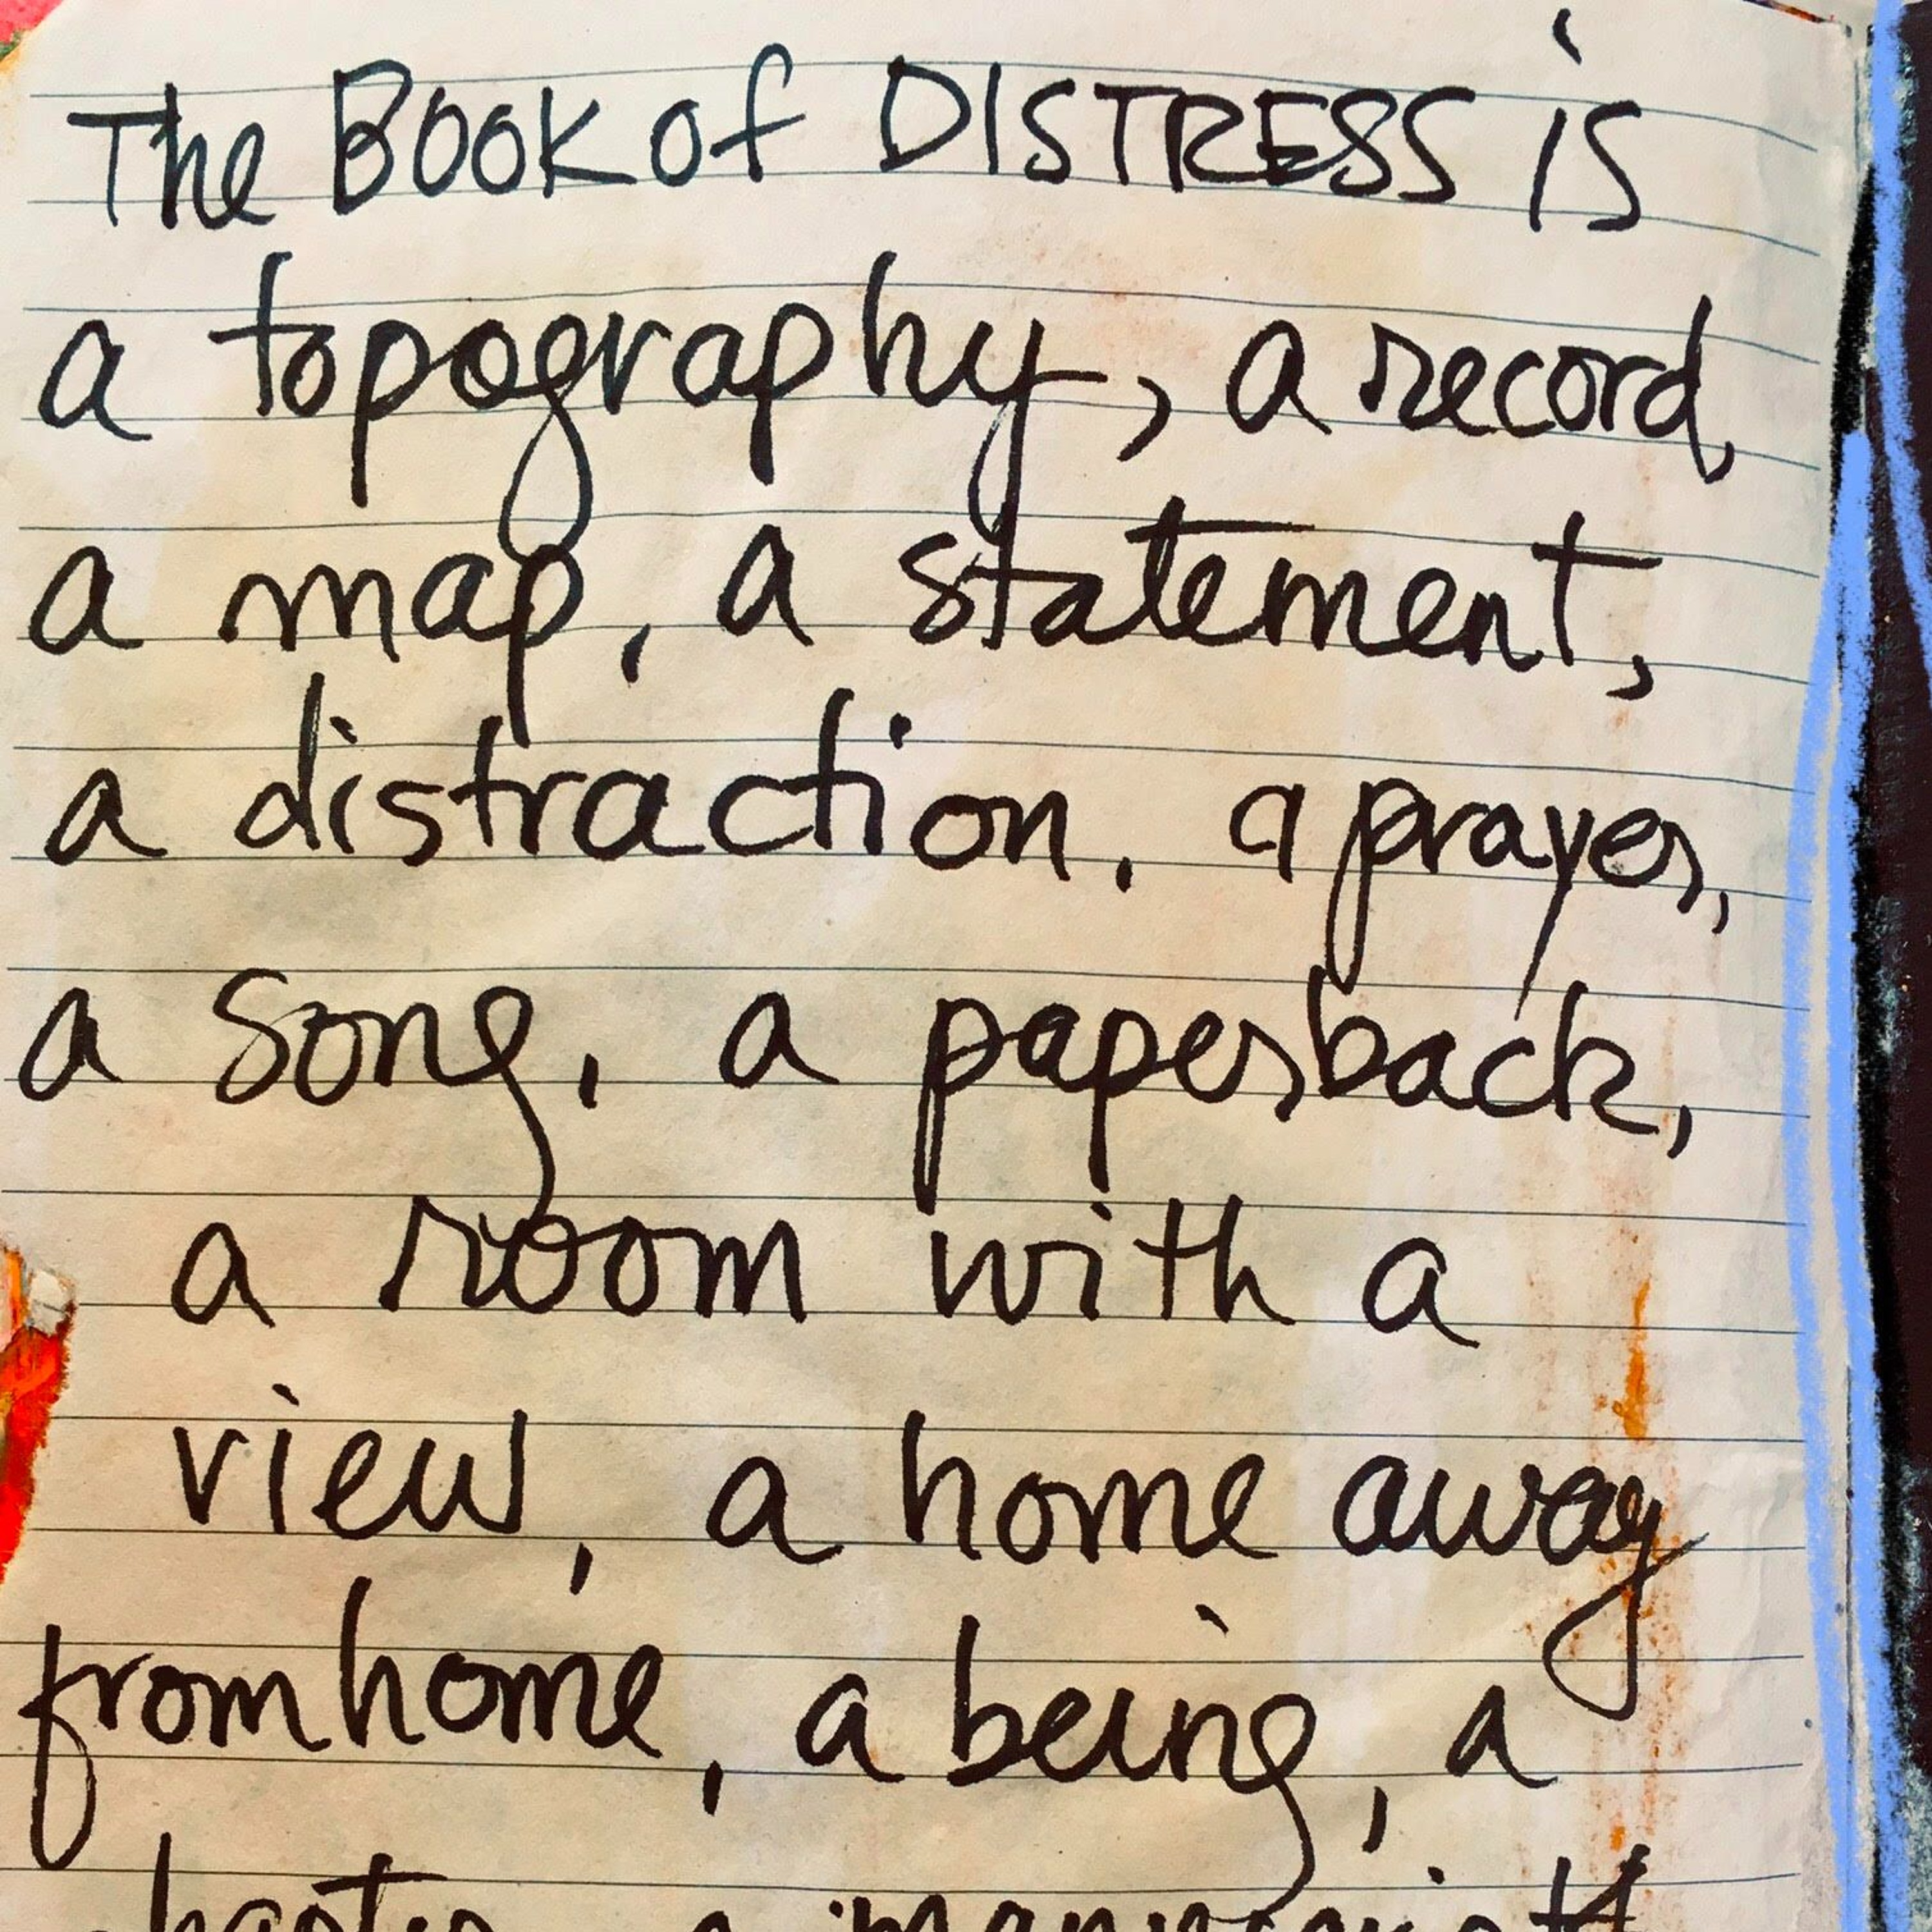 The BOOK of DISTRESS is
a topography, a record,
a map, a statement,
a distraction, a prayer,
a song, a paperback,
a room with a
view, a home away
from home, a being, a
chapter, a manuscript